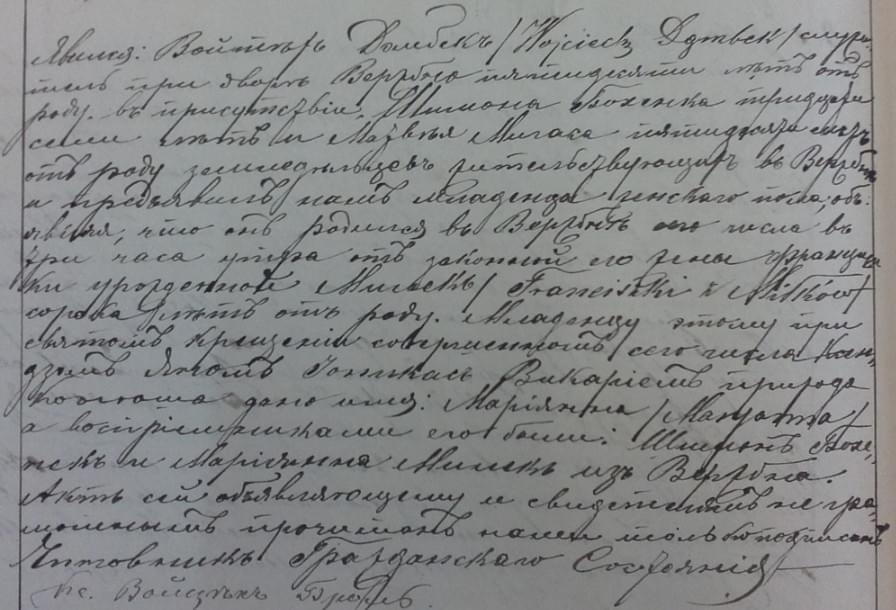 Явился: Войтѣхъ Домбекъ /Wojciech Dąmbek/ служи-
тель при дворѣ Вержбно пятидесяти лѣтъ отъ
роду, въ присутствіи, Шимона Бохенка тридцати
семи лѣтъ и Матвѣя Мигаса пятидесяти лѣтъ
отъ роду земледѣльцевъ жительствующихъ въ Вержбнѣ
и предъявилъ намъ младенца женскаго пола, объ-
являя, что онъ родился въ Вержбнѣ сего числа въ
три часа утра отъ законной его жены Францишки
ки урожденной Митекъ / Franciszki z Mitków /
сорока лѣтъ отъ роду. Младенцу этому при
святомъ крещеніи совершенномъ сего числа Ксен-
дзомъ Викаріемъ прихода
дано имя: Маріянна /Maryanna/
а воспріемниками его были: Шимонъ Бохе-
некъ и Маріянна Митекъ изъ Вержбна.
Актъ сей объявляющему и свидѣтелямъ не гра-
мотнымъ прочитанъ нами только подписанъ
Чиновникъ Гражданскаго Состоянія
Кс. Войцѣхъ